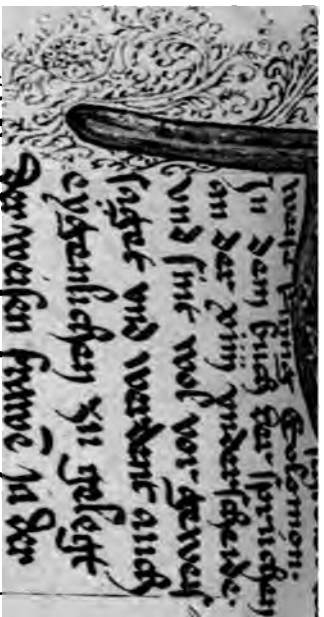 weise kunig Salomon.
In dem buch der sprichen
an der xiiij vnderscheide.
vnd sint wol vor gemes
siget vnd werdent auch
eygenlichen zu gelegt
Den weisen frawē In der